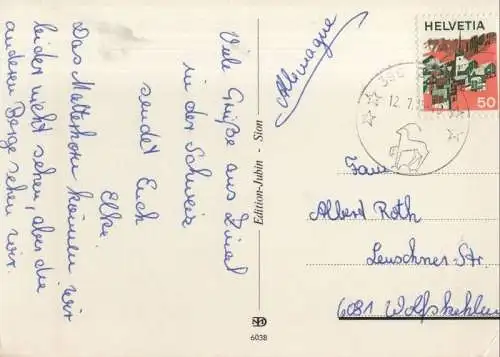 Viele Grüße aus Zinal
in der Schweiz
sendet Euch
Elke.
Das Matterhorn können wir
leider nicht sehen, aber die
anderen Berge sehen wir.
Edition-Jubin - Sion
6038
Allemagne
HELVETIA
50
12.7.
Albert Roth
Leuschner-Str.
6081 Wolfskehlen